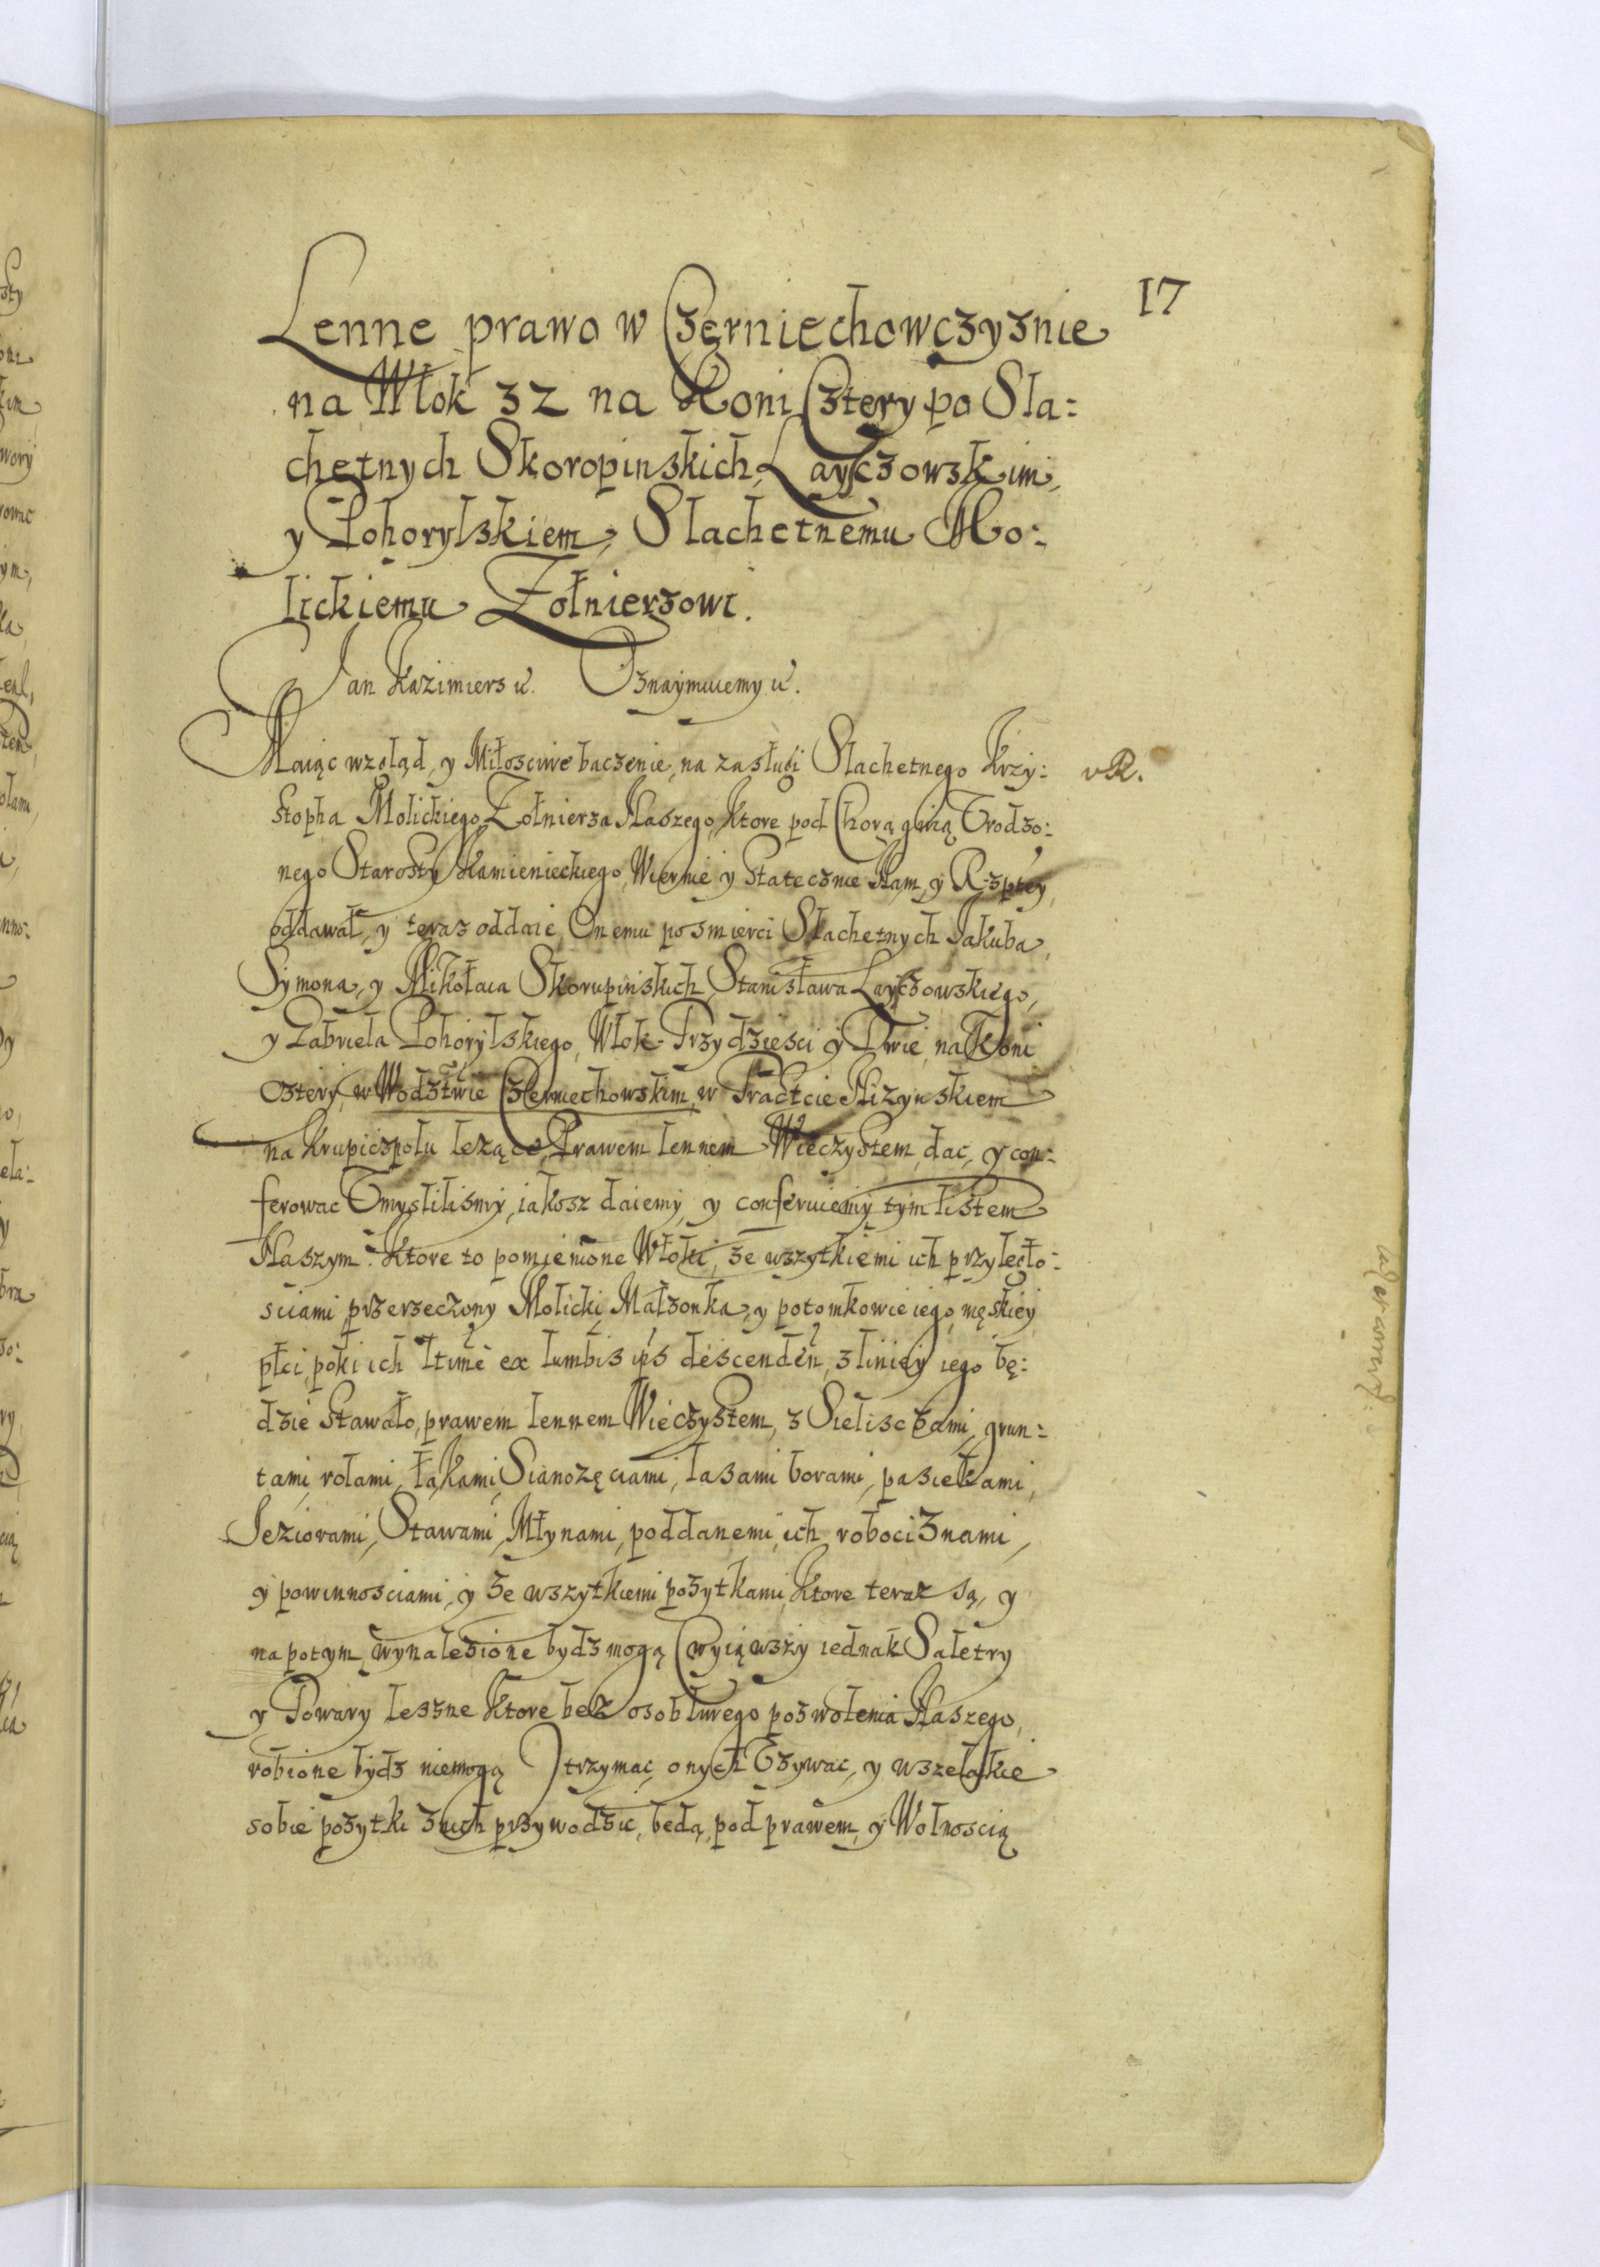 17
Lenne prawo w Czerniechowczyznie
na Włok 32 na Koni Cztery po Sla=
chetnych Skoropinskich, Layczowskim,
y Pohorylskiem, Slachetnemu Mo=
lickiemu Zołnierzowi.
Jan Kazimierz Oznaymuiemy
Maiąc wzgląd, y Miłosciwe baczenie, na zasługi Slachetnego Krzy= vR.
stopha Molickiego Zołnierza Naszego, Ktore pod Chorągwią Vrodzo=
nego Starosty Kamienieckiego, Wiernie y Statecznie Nam, y R-zptey,
oddawał, y teraz oddaie, Onemu po smierci Slachetnych Jakuba,
Symona, y Mikołaia Skorupinskich, Stanisława Layczowskiego,
y Gabriela Pohorylskiego, Włok Trzydziesci y Dwie, na Koni
Cztery, w Czerniechowskim, w Tractcie Nizynskiem
na Krupiczpolu lezące, Prawem lennem Wieczystem, dac, y con=
ferowac Vmyslilismy, iakosz daiemy, y conferuiemy tym listem
Naszym. Ktore to pomienione Włoki, ze wszytkiemi ich przyległo=
sciami, przerzeczony Molicki, Małzonka, y potomkowie iego, męskiey
płci, poki ich ltime ex lumbis ips descenden, z liniey iego bę=
dzie Stawało, prawem lennem Wieczystem, z Sieliszczami, grun=
tami, rolami, łąkami, Sianozęciami, lasami borami, pasiekami,
Jeziorami, Stawami, Młynami, poddanemi, ich robociznami,
y powinnosciami, y ze wszytkiemi pozytkami, Ktore teraz są, y
na potym wynalezione bydz mogą (wyiąwszy iednak Saletry
y Towary leszne Ktore bez osobliwego pozwolenia Naszego,
robione bydz niemogą) trzymac, onych Vzywac, y wszelakie
sobie pozytki znich przywodzic, będą, pod prawem, y Wolnoscią